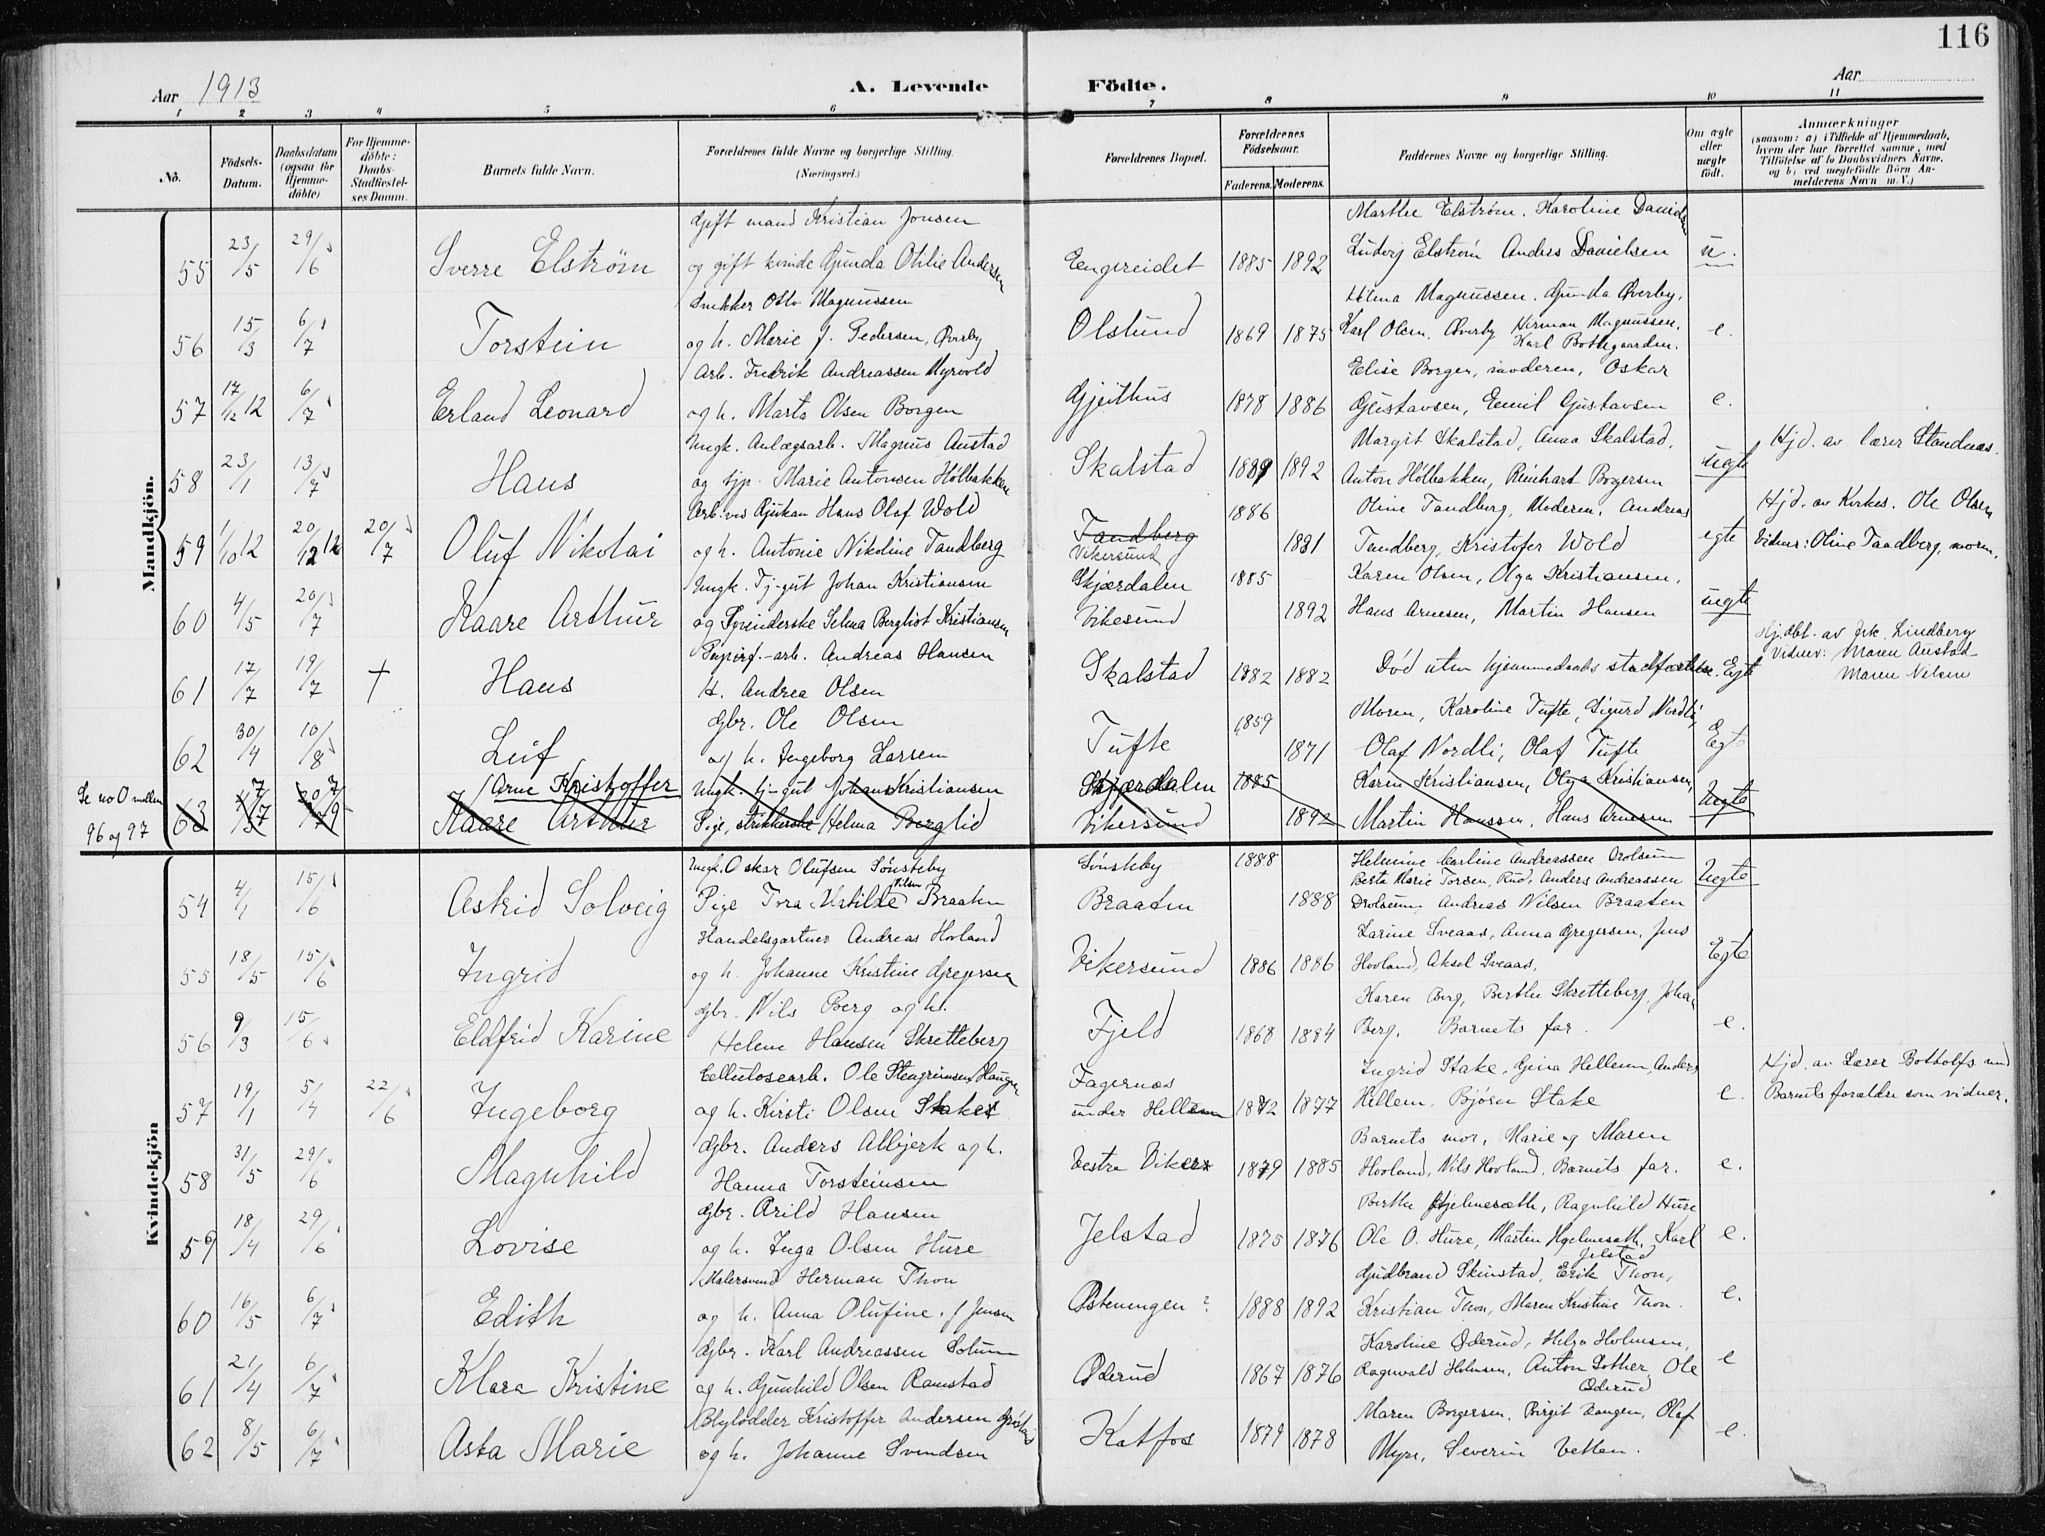 116
Aar 1913
A. Levende Födte.
Aar
1 2 3 4 5 6 7 8 9 10 11
No.
Födsels-Datum.
Daabsdatum (ogsaa for Hjemmedöbte)
For Hjemmedöbte: Daabs-Stadfæstelses Datum.
Barnets fulde Navn.
Forældrenes fulde Navne og borgerlige Stilling.
(Næringsvei.)
Forældrenes Bopæl.
Forældrenes Födselsaar.
Faderens. Moderens.
Faddernes Navne og borgerlige Stilling.
Om ægte eller uægte födt.
Anmærkninger
(saasom: a) i Tilfælde af Hjemmedaab, hvem der har forrettet samme, med Tilföielse af to Daabsvidners Navne, og b) ved uægtefödte Börn Anmelderens Navn m. V.)
Mandkjön.
Gift mand Kristian Jonsen Marthe Elstrøm. Karoline Davidsen
55 23/5 29/6 Sverre Elstrøm og gift kvinde Gunda Otilie Andersen Engereidet 1885 1892 Ludvig Elstrøm Anders Danielsen u.
Snekker Otto Magnussen Hilma Magnussen. Gunda Øverby.
56 15/3 6/7 Torstein og h. Marie f. Pedersen, Øverby Olslund 1869 1875 Karl Olsen, Øverby Herman Magnussen. Karl Bottegaarden. e.
Arb. Fredrik Andreassen Myrvold Elise Borgen, moderen, Oskar
57 17/12 12 6/7 Erland Leonard og h. Marta Olsen Borgen Gjeithus 1878 1886 Gustavsen, Emil Gustavsen e.
Ungk. Anlægsarb. Magnus Austad Margit Skalstad, Anna Skalstad. Hjd. av lærer
58 23/1 13/7 Haus og tjp. Marie Antonsen Hölbakken Skalstad 1889 1892 Anton Hölbakken, Reinhart Borgersen uegte
Arb. ved Rjukan Hans Olaf Wold 1886 Oline Tandberg, Moderen, Andreas Hjd. av Kirkes. Ole Olsen
59 1/10 12 20/12 12 20/7 Oluf Nikolai og h. Antonie Nikoline Tandberg Tandberg Vikersund 1891 Tandberg, Kristofer Wold egte Vidner: Oline Tandberg, morm.
Ungk. Tj-gut Johan Kristiansen Skjærdalen 1885 Karen Olsen, Olga Kristiansen,
60 4/5 20/7 Kaare Arthur og Spinderske Selma Bergliot Kristiansen Vikesund 1892 Hans Arnesen, Martin Hansen uegte
Papirf.-arb. Andreas Hansen Hj.dbt. av frk. Lindberg
61 17/7 19/7 † Hans H. Andrea Olsen Skalstad 1882 1882 Død uten hjemmedaabs stadfæstelse. Egte Vidner: Maren Austad Maren Nilsen
Gbr. Ole Olsen 1859 Moren, Karoline Tufte, Sigurd Nordli,
62 30/4 10/8 Leif og h. Ingeborg Larsen Tufte 1871 Olaf Nordli, Olaf Tufte Egt
Se no 0 mellem 96 og 97
Arne Kristoffer Ungk. tj-gut Johan Kristiansen Skjærdalen 1885 Karen Kristiansen, Olga Kristiansen,
63 Kaare Arthur Pige, strikkerske Helma Berglid Vikersund 1892 Martin Hanssen, Hans Arnesen Uegte
Kvindekjön
Ungk. Oskar Olufsen Sönsteby Sönsteby 1888 Helmine Carline Andreassen Drolsum
54 4/1 15/6 Astrid Solveig Pige Tora Matilde Nilsen Braaten Braaten 1888 Berta Marie Torsen, Rud, Anders Andreassen Drolsum, Andreas Nilsen Braaten Uegte
Handelsgartner Andreas Hovland Larine Sveaas, Anna Gregersen, Jens
55 18/5 15/6 Ingrid og h. Johanne Kristine Gregersen Vikersund 1886 1886 Hovland, Aksel Sveaas, Egte
Gbr. Nils Berg og h. Karen Berg, Berthe Skretteberg, Johan
56 9/3 15/6 Eldfrid Karine Helene Hansen Skretteberg Fjeld 1868 1884 Berg. Barnets far. e.
Cellulosearb. Ole Stengrimsen Haugen Ingrid Stake, Gina Hellem, Anders Hjd. av Lærer Botholfs med
57 19/1 5/4 22/6 Ingeborg og h. Kirsti Olsen Stake Fagernæs under Hellem 1872 1877 Hellem. Bjørn Stake e. Barnets forældre som vidner.
Gbr. Anders Albjerk og h. Barnets mor, Marie og Maren
58 31/5 29/6 Magnhild Hanna Torsteinsen Vestre Viker 1879 1885 Hovland, Nils Hovland. Barnets far. e.
Gbr. Arild Hansen Berthe Hjelmesæth, Ragnhild Hure
59 18/4 29/6 Lovise og h. Inga Olsen Hure Jelstad 1875 1876 Ole O. Hure, Martin Hjelmesæth, Karl Jelstad e.
Malersvend Herman Thon Gudbrand Skinstad, Erik Thon,
60 16/5 6/7 Edith og h. Anna Olufine f. Jensen Østeningen? 1888 1892 Kristian Thon, Maren Kristine Thon. e.
Gbr. Karl Andreassen Karoline Øderud, Helga Holmsen,
61 21/4 6/7 Klara Kristine og h. Gunhild Olsen Ramstad Øderud 1867 1876 Ragnvald Holmsen, Anton Sother, Ole Øderud e
Blylødder Kristoffer Andersen Maren Borgersen. Birgit Vangen, Olaf
62 8/5 6/7 Asta Marie og h. Johanne Svendsen Katfos 1879 1878 Myre, Severin Vetten. e.